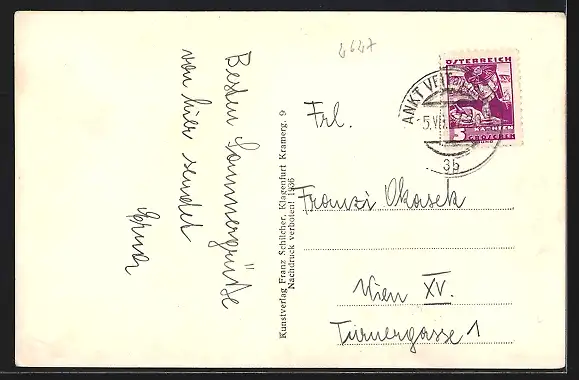 4647
Besten Sommergrüße
von hier sendet
Erna
Kunstverlag Franz Schilcher, Klagenfurt Kramerg. 9
Nachdruck verboten! 1936
ÖSTERREICH
5 KÄRNTEN
GROSCHEN
ANKT VEIT
5.VII.
3b
Frl.
Franzi Okasek
Wien XV.
Turnergasse 1